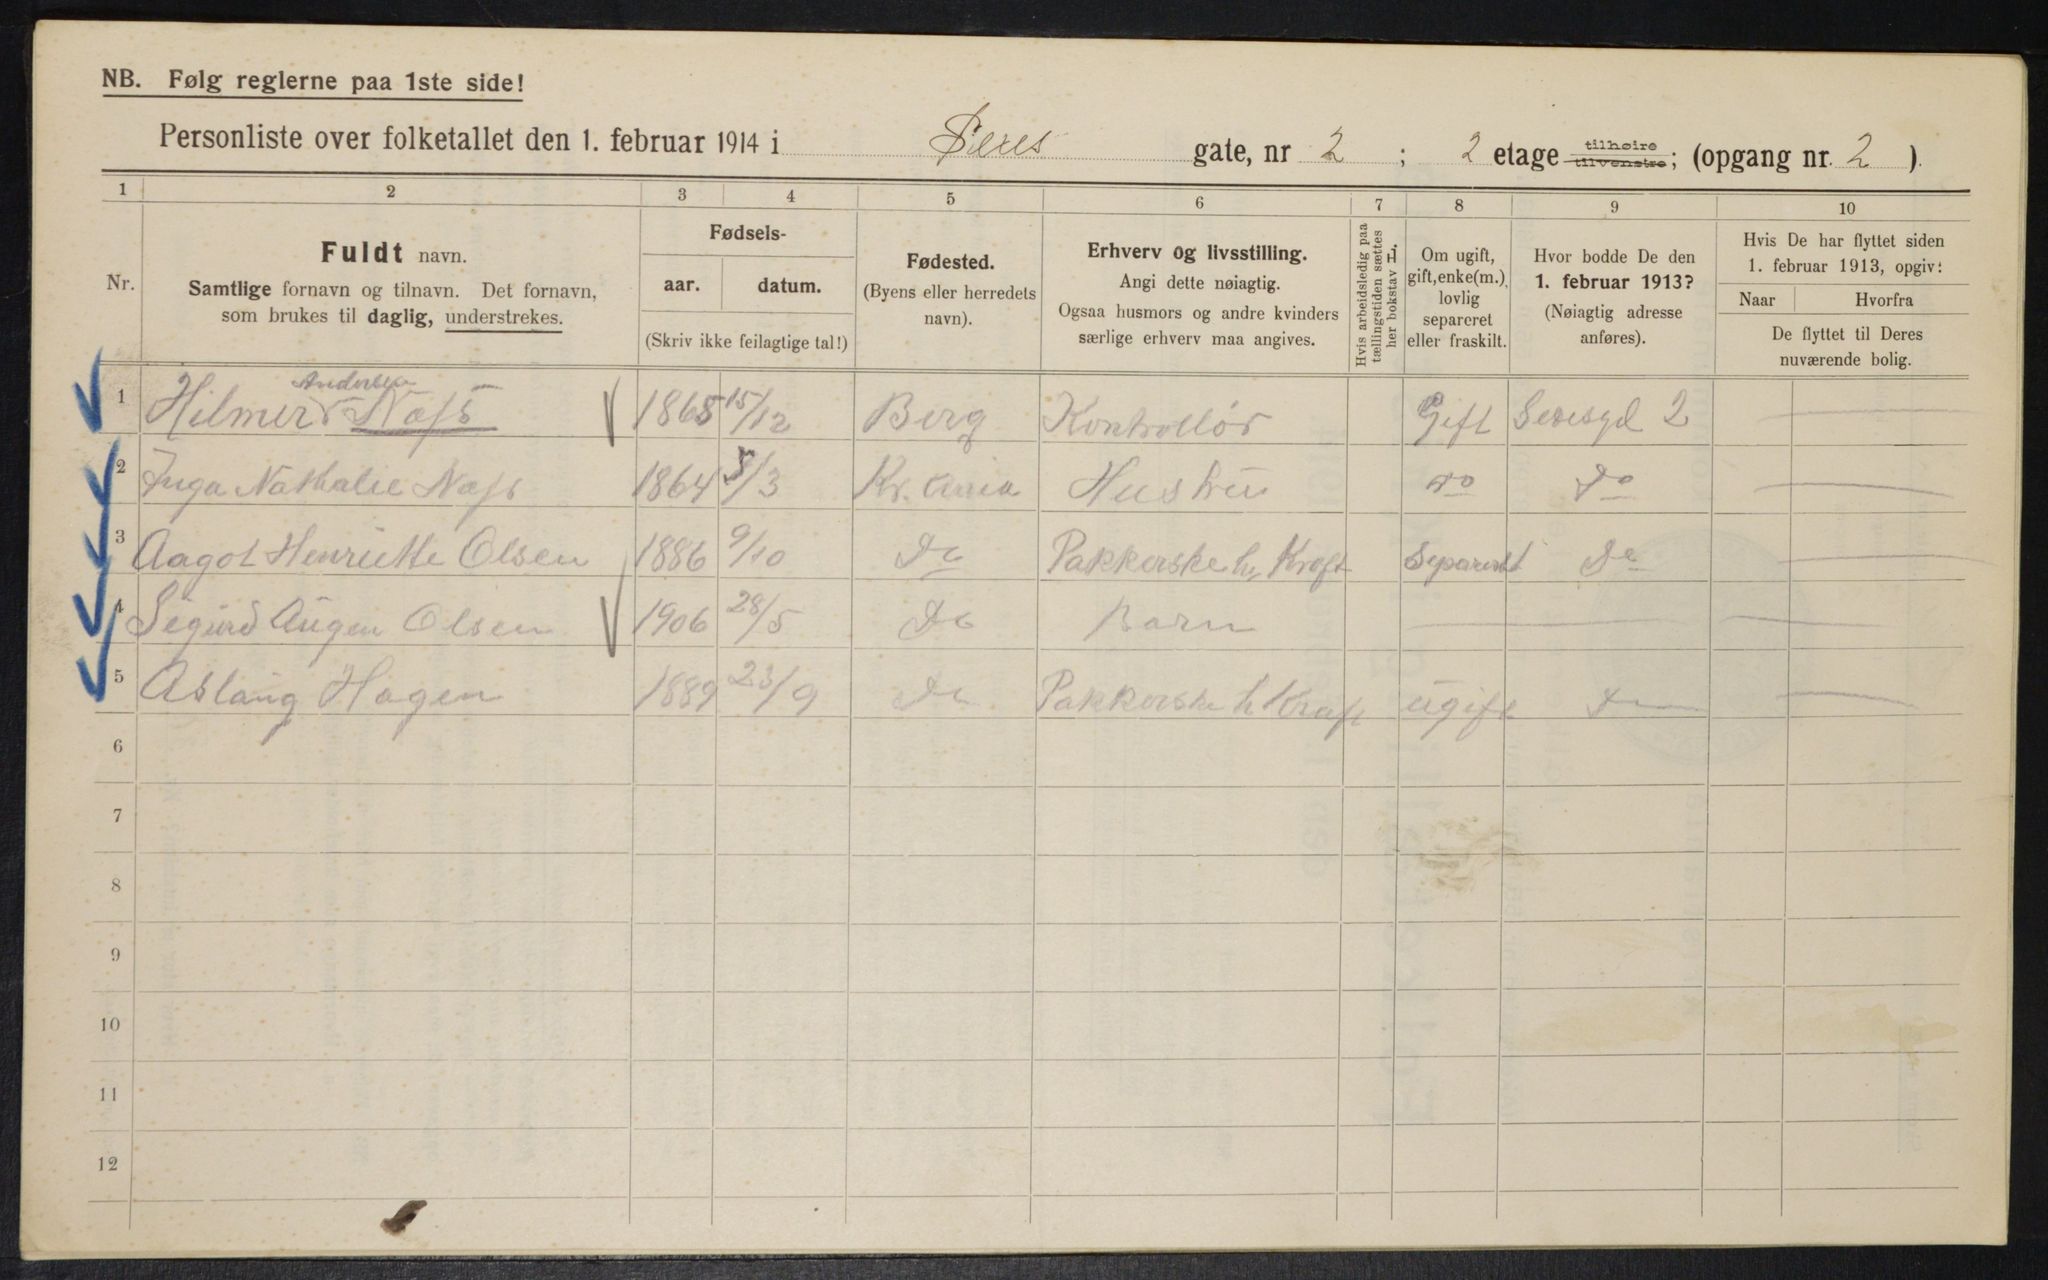 NB. Følg reglerne paa 1ste side!
Personliste over folketallet den 1. februar 1914 i Seres gate, nr 2 ; 2 etage tilhøire tilvenstre; (opgang nr. 2 ).
1 2 3 4 5 6 7 8 9 10
Nr. Fuldt navn. Samtlige fornavn og tilnavn. Det fornavn, som brukes til daglig, understrekes.
Fødsels- aar. datum. (Skriv ikke feilagtige tal!)
Fødested. (Byens eller herredets navn).
Erhverv og livsstilling. Angi dette nøiagtig. Ogsaa husmors og andre kvinders særlige erhverv maa angives.
Hvis arbeidsledig paa tællingstiden sættes her bokstav L.
Om ugift, gift, enke(m.), lovlig separeret eller fraskilt.
Hvor bodde De den 1. februar 1913? (Nøiagtig adresse anføres).
Hvis De har flyttet siden 1. februar 1913, opgiv: Naar Hvorfra De flyttet til Deres nuværende bolig.
Andersen
1 Hilmer Næss 1865 15/12 Berg Kontrollør Gift Seresgd 2
2 Inga Nathalie Næss 1864 5/3 Kr. ania Hustru Do Do
3 Aagot Henriette Olsen 1886 9/10 Do Pakkerske h, Kraft Separert Do
4 Sigurd Augen Olsen 1906 28/5 Do Barn
5 Aslaug Hagen 1889 23/9 Do Pakkerske h Kraft ugift Do
6
7
8
9
10
11
12